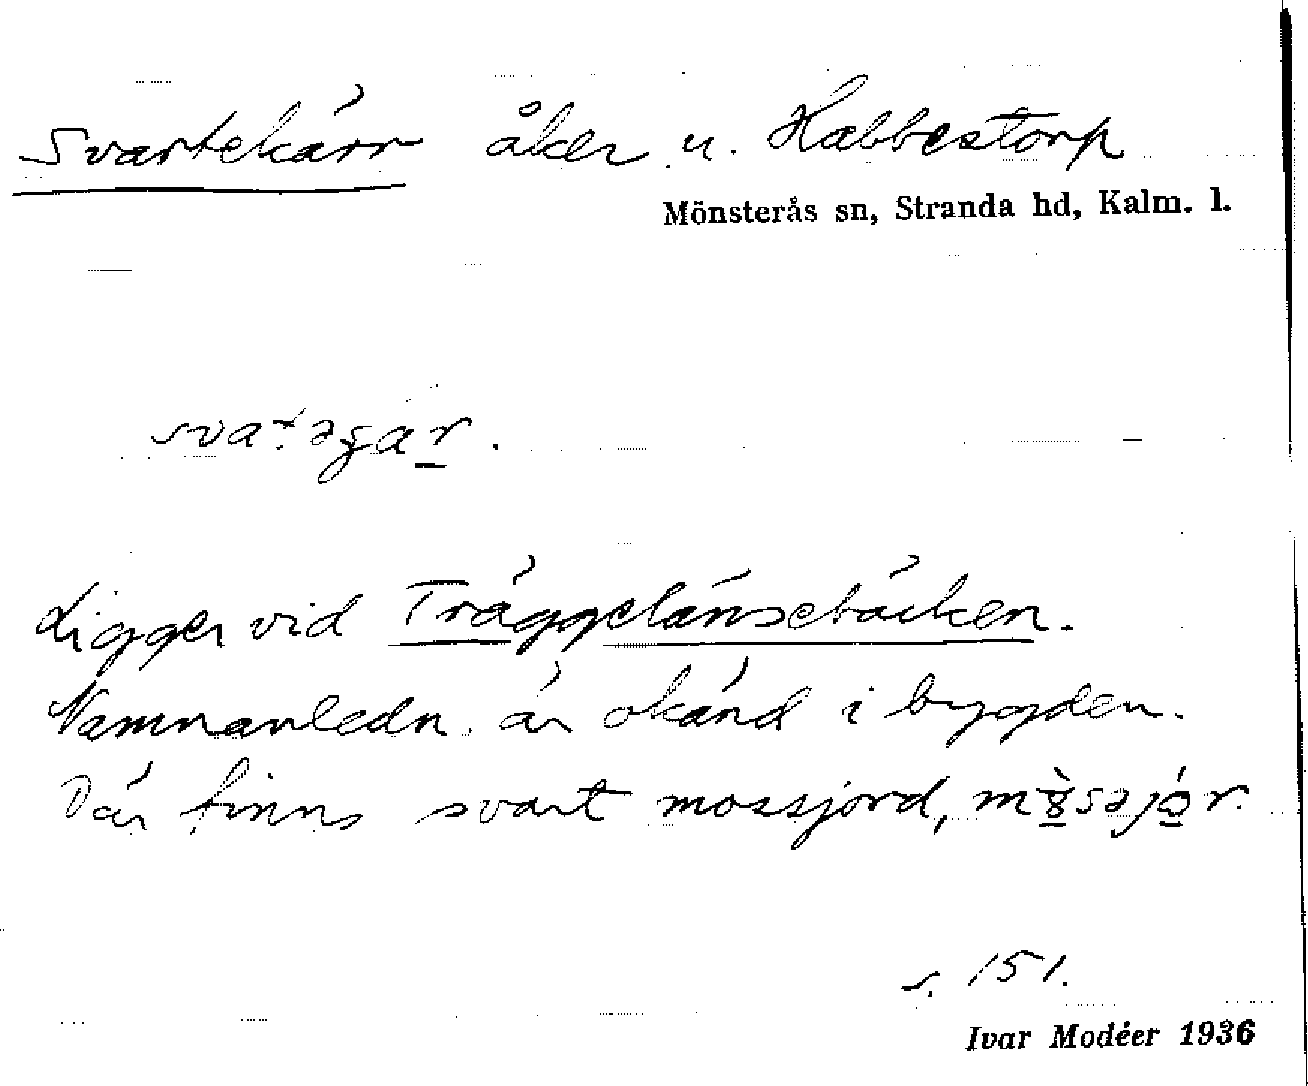 Svartekärr åker u. Habbestorp
Mönsterås sn, Stranda hd, Kalm. l.
Ligger vid Träggelänsebäcken.
Namnanledn. är okänd i bygden.
Där finns svart mossjord,
s. 151.
Ivar Modéer 1936